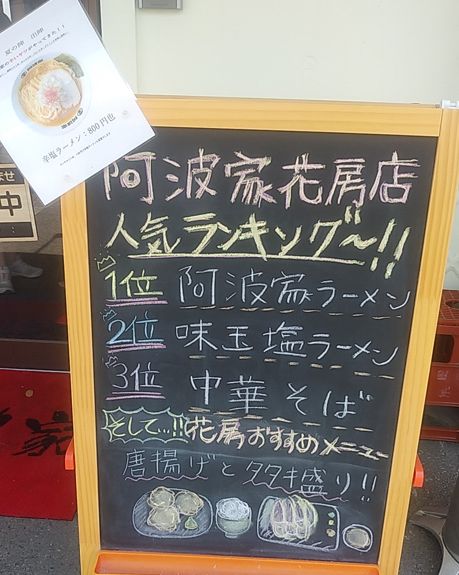 夏の陣 出陣
辛塩ラーメン：800円也
中
阿波家花房店
人気ランキング〜!!
1位 阿波家ラーメン
2位 味玉塩ラーメン
3位 中華そば
そして…!!花房おすすめメニュー
唐揚げとタタキ盛り!!
家